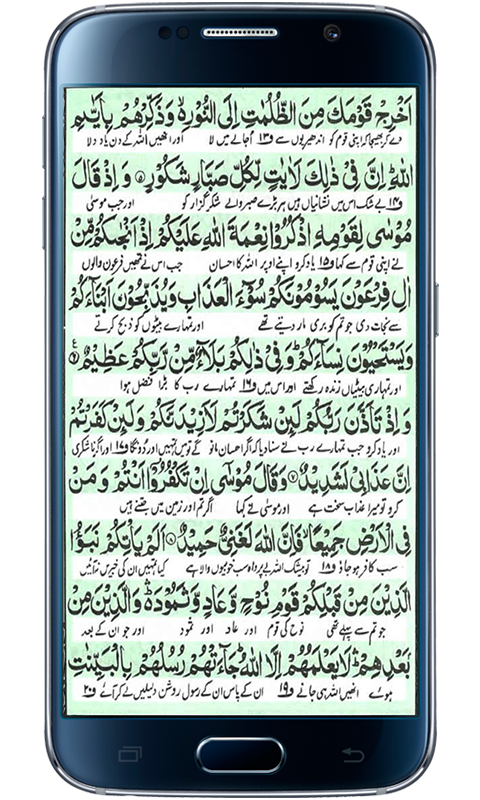 اَخْرِجْ قَوْمَكَ مِنَ الظُّلُمٰتِ اِلَى النُّوْرِ۬ۙ وَذَكِّرْهُمْ بِاَيّٰىمِ
دے کر بھیجا کہ اپنی قوم کو اندھیریوں سے ف۱۳ اُجالے میں لا اور انھیں اللہ کے دن یاد دلا
اللّٰهِؕ اِنَّ فِیْ ذٰلِكَ لَاٰیٰتٍ لِّكُلِّ صَبَّارٍ شَكُوْرٍ۝۵ وَ اِذْ قَالَ
ف۱۴ بے شک اس میں نشانیاں ہیں ہر بڑے صبر والے شکر گزار کو اور جب موسٰی
مُوْسٰى لِقَوْمِهِ اذْكُرُوْا نِعْمَةَ اللّٰهِ عَلَیْكُمْ اِذْ اَنْجٰىكُمْ مِّنْ
نے اپنی قوم سے کہا ف۱۵ یاد کرو اپنے اوپر اللہ کا احسان جب اس نے تمھیں فرعون والوں
اٰلِ فِرْعَوْنَ یَسُوْمُوْنَكُمْ سُوْٓءَ الْعَذَابِ وَیُذَبِّحُوْنَ اَبْنَآءَكُمْ
سے نجات دی جو تم کو بری مار دیتے تھے اور تمہارے بیٹوں کو ذبح کرتے
وَیَسْتَحْیُوْنَ نِسَآءَكُمْؕ وَفِیْ ذٰلِكُمْ بَلَآءٌ مِّنْ رَّبِّكُمْ عَظِیْمٌ۝۶
اور تمہاری بیٹیاں زندہ رکھتے اور اس میں ف۱۶ تمہارے رب کا بڑا فضل ہوا
وَاِذْ تَاَذَّنَ رَبُّكُمْ لَىِٕنْ شَكَرْتُمْ لَاَزِیْدَنَّكُمْ وَلَىِٕنْ كَفَرْتُمْ
اور یاد کرو جب تمہارے رب نے سنادیا کہ اگر احسان مانو گے تو میں تمہیں اور دوں گا ف۱۷ اور اگر ناشکری
اِنَّ عَذَابِیْ لَشَدِیْدٌ۝۷ وَقَالَ مُوْسٰۤى اِنْ تَكْفُرُوْۤا اَنْتُمْ وَ مَنْ
کرو تو میرا عذاب سخت ہے اور موسٰی نے کہا اگر تم اور زمین میں جتنے ہیں
فِی الْاَرْضِ جَمِیْعًاۙ فَاِنَّ اللّٰهَ لَغَنِیٌّ حَمِیْدٌ۝۸ اَلَمْ یَاْتِكُمْ نَبَؤُا
سب کافر ہوجاؤ ف۱۸ تو بیشک اللہ بے پرواہ سب خوبیوں والا ہے کیا تمہیں ان کی خبریں نہ آئیں
الَّذِیْنَ مِنْ قَبْلِكُمْ قَوْمِ نُوْحٍ وَّعَادٍ وَّثَمُوْدَ۬ۛؕ وَالَّذِیْنَ مِنْۢ
جو تم سے پہلے تھی نوح کی قوم اور عاد اور ثمود اور جو ان کے بعد
بَعْدِهِمْ۬ۛؕ لَا یَعْلَمُهُمْ اِلَّا اللّٰهُؕ جَآءَتْهُمْ رُسُلُهُمْ بِالْبَیِّنٰتِ
ہوئے انھیں اللہ ہی جانے ف۱۹ ان کے پاس ان کے رسول روشن دلیلیں لے کر آئے ف۲۰